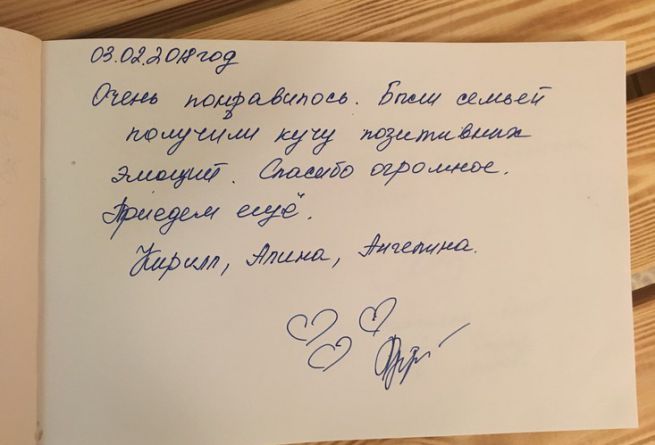 03.02.2018 год
Очень понравилось. Были семьёй
получили кучу позитивных
эмоций. Спасибо огромное.
Приедем ещё.
Кирилл, Алина, Ангелина.